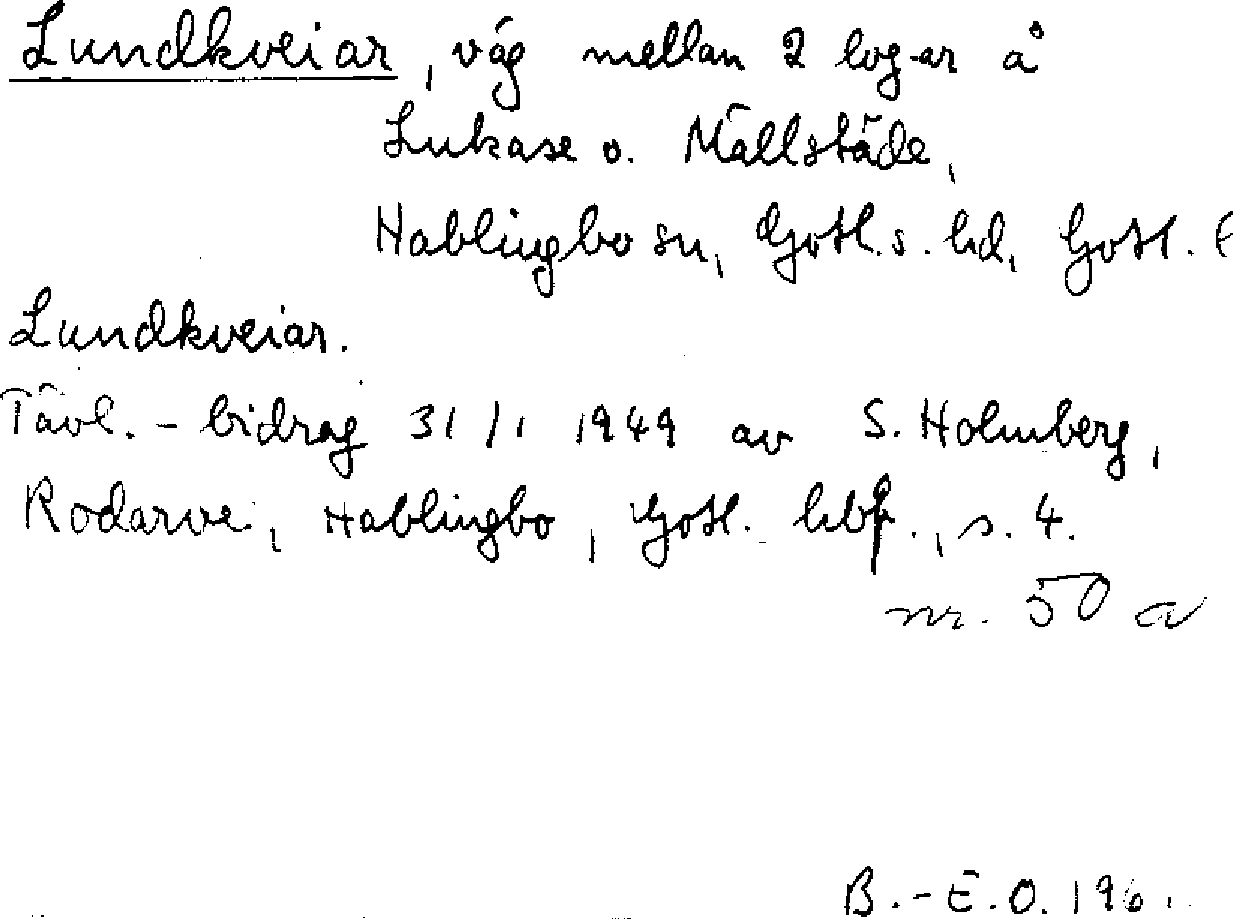 Lundkveiar, väg mellan 2 log-ar å
Lukase o. Mällstäde,
Hablingbo sn, Gotl. s. hd, Gotl.
Lundkveiar.
Tävl. - bidrag 31/1 1949 av S. Holmberg,
Rodarve, Hablingbo, Gotl. hbf., s. 4.
nr. 50 a
B.-E.O. 196